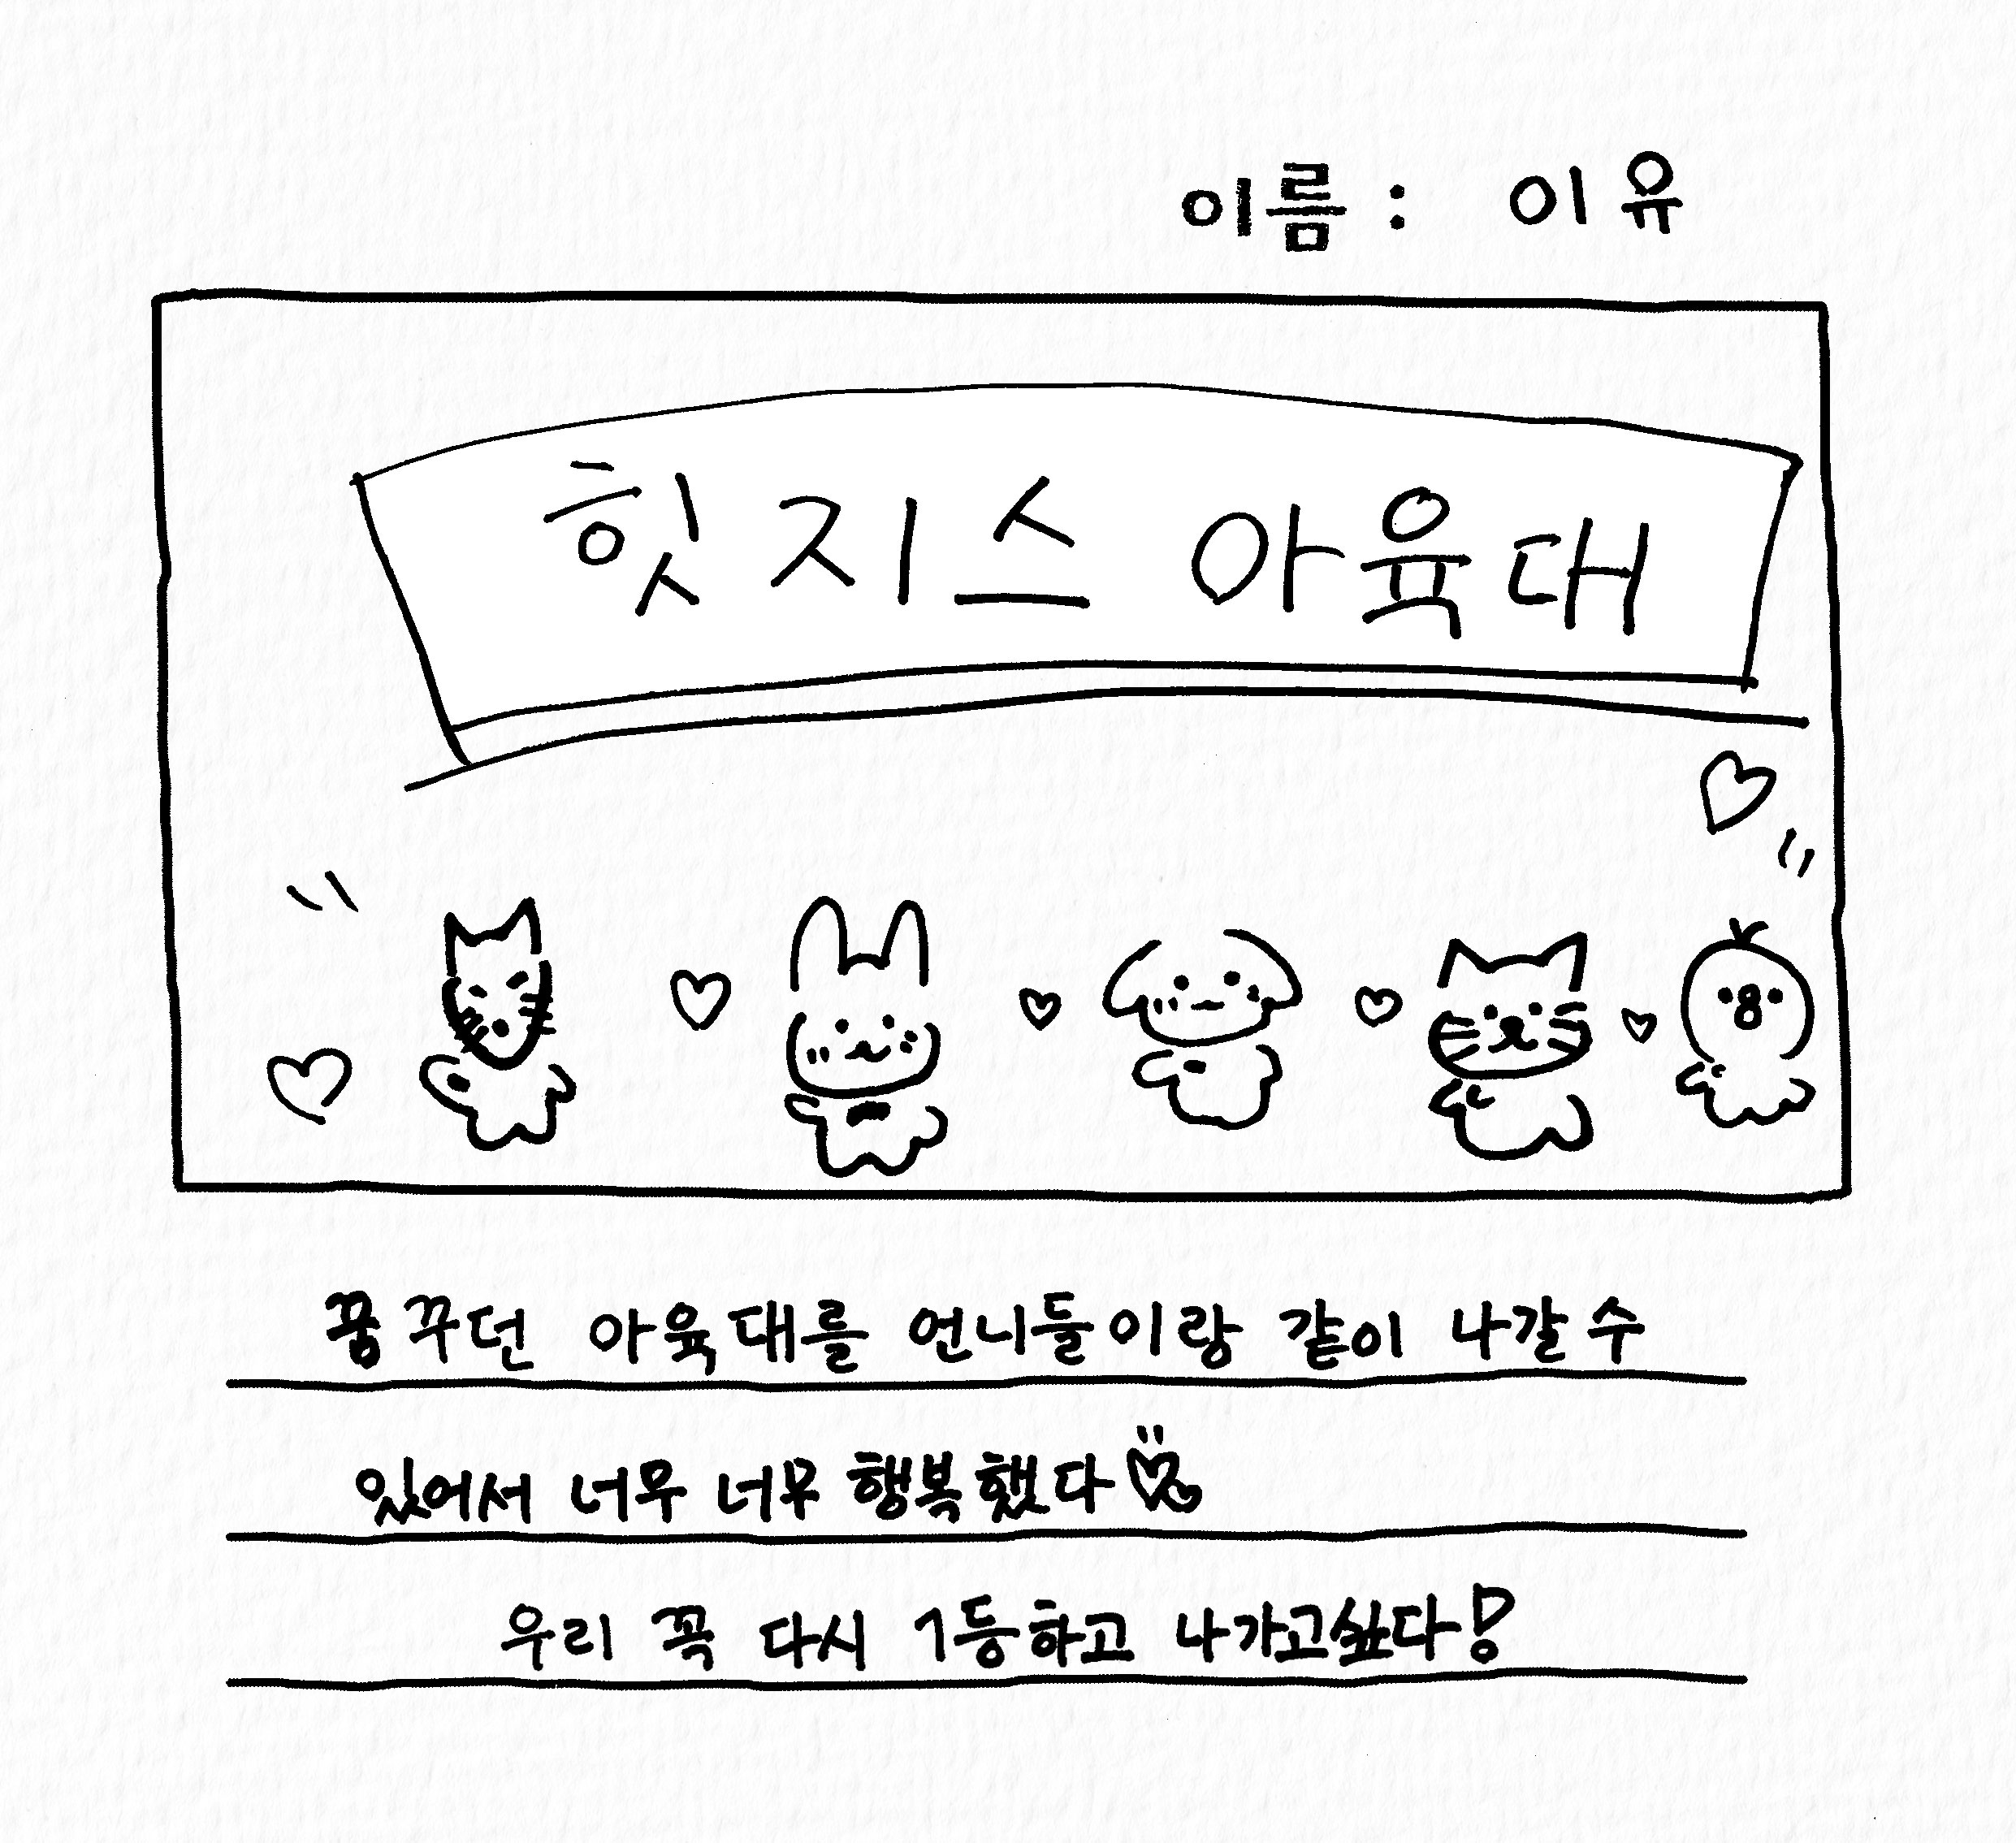 이름 : 이유
힛지스 아육대
꿈꾸던 아육대를 언니들이랑 같이 나갈 수
있어서 너무 너무 행복했다
우리 꼭 다시 1등하고 나가고싶다!